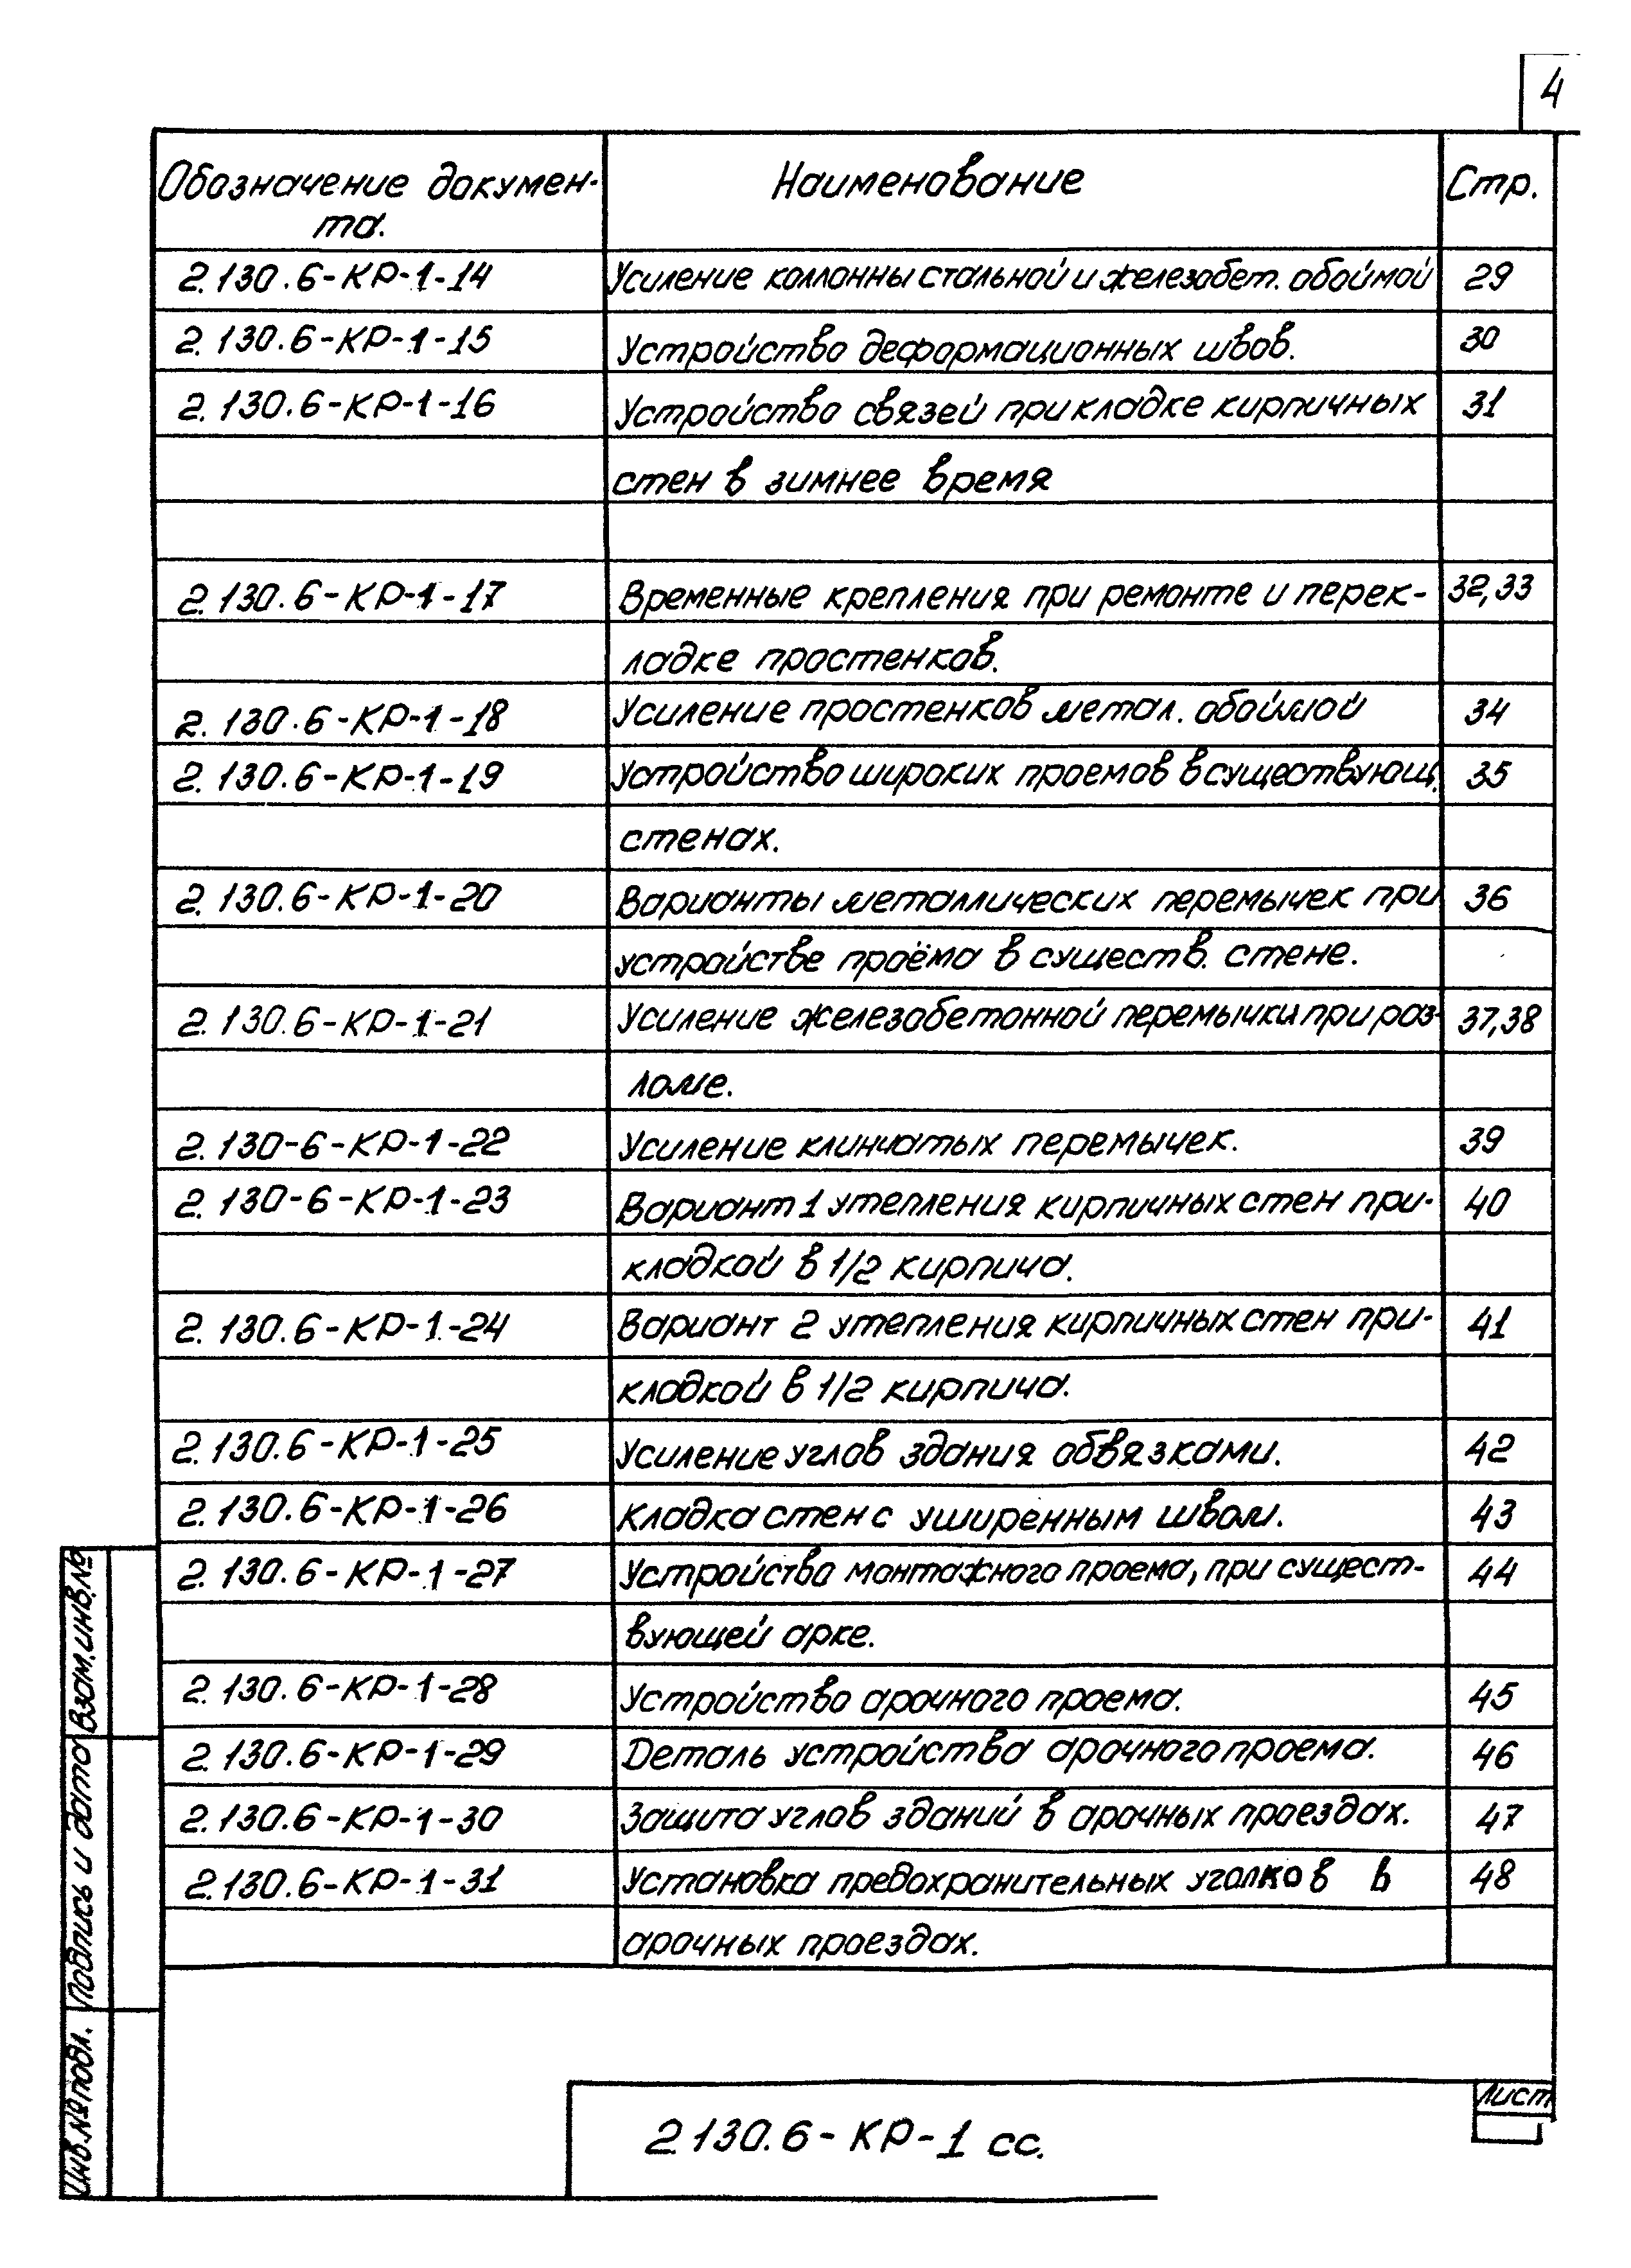 4
Обозначение докумен- Наименование Стр.
та.
2.130.6-КР-1-14 Усиление коллонны стальной и железобет. обоймой 29
2.130.6-КР-1-15 Устройство деформационных швов. 30
2.130.6-КР-1-16 Устройство связей при кладке кирпичных 31
стен в зимнее время
2.130.6-КР-1-17 Временные крепления при ремонте и перек- 32,33
ладке простенков.
2.130.6-КР-1-18 Усиление простенков метал. обоймой 34
2.130.6-КР-1-19 Устройство широких проемов в существующ. 35
стенах.
2.130.6-КР-1-20 Варианты металлических перемычек при 36
устройстве проёма в существ. стене.
2.130.6-КР-1-21 Усиление железобетонной перемычки при раз- 37,38
ломе.
2.130-6-КР-1-22 Усиление клинчатых перемычек. 39
2.130-6-КР-1-23 Вариант 1 утепления кирпичных стен при- 40
кладкой в 1/2 кирпича.
2.130.6-КР-1-24 Вариант 2 утепления кирпичных стен при- 41
кладкой в 1/2 кирпича.
2.130.6-КР-1-25 Усиление углов здания обвязками. 42
2.130.6-КР-1-26 Кладка стен с уширенным швом. 43
2.130.6-КР-1-27 Устройство монтажного проема, при сущест- 44
вующей арке.
2.130.6-КР-1-28 Устройство арочного проема. 45
2.130.6-КР-1-29 Деталь устройства арочного проема. 46
2.130.6-КР-1-30 Защита углов зданий в арочных проездах. 47
2.130.6-КР-1-31 Установка предохранительных уголков в 48
арочных проездах.
Взам.инв.№
Подпись и дата
Инв.№ подл.
2 130.6-КР-1 сс.
Лист